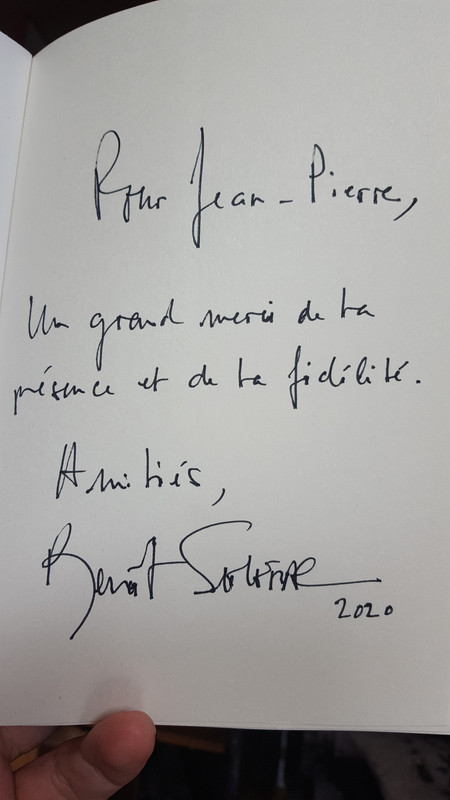 Pour Jean-Pierre,
Un grand merci de ta
présence et de ta fidélité.
Amitiés,
Benoît Solène
2020